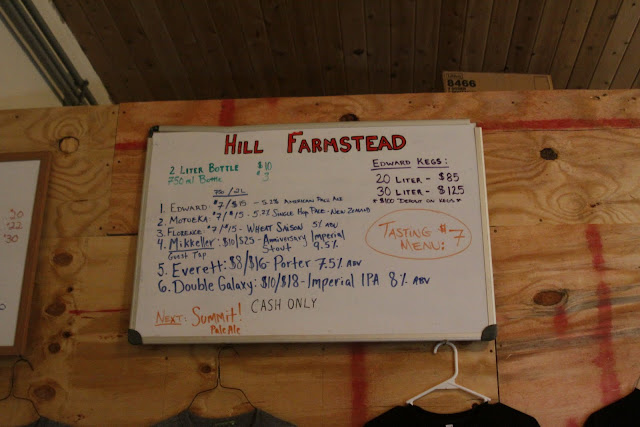 8466
HILL FARMSTEAD
2 LITER BOTTLE $10
750 ml Bottle $3
750/2L
1. EDWARD $7/$15 - 5.2% AMERICAN PALE ALE
2. MOTUEKA $7/$15 - 5.2% SINGLE HOP PALE - NEW ZEALAND
3. FLORENCE $7/$15 - WHEAT SAISON 5% ABV
4. Mikkeller: $10/$25 - Anniversary Imperial
Guest Tap Stout 9.5%
5. Everett: $8/$16 - Porter 7.5% ABV
6. Double Galaxy: $10/$18 - Imperial IPA 8% ABV
CASH ONLY
NEXT: Summit!
Pale Ale
EDWARD KEGS:
20 LITER - $85
30 LITER - $125
* $100 DEPOSIT ON KEGS *
TASTING $7
MENU:
20
'22
'30